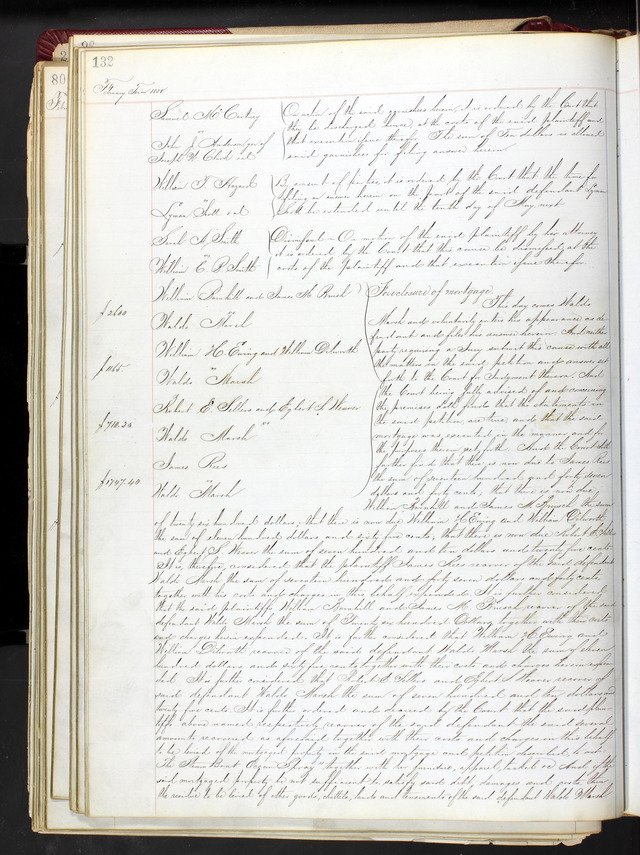 132
February Term 1858
Samuel McCartney
On motion of the said garnishee herein, it is ordered by the Court that
vs
they be discharged hence, at the costs of the said plaintiff and
John J. Anderson
that execution issue therefor. The sum of Ten dollars is allowed
Joseph W. et al
said garnishee for filing answer herein
William T. Hazard
By consent of parties, it is ordered by the Court that the time for
vs
filing answer herein on the part of the said defendant Lyman
Lyman et al
be extended until the tenth day of May next
Smith
Dismissed - On motion of the said plaintiff by his attorney
vs
it is ordered by the Court that the cause be dismissed, at the
William C. R. Smith
costs of the plaintiff and that execution issue therefor
William and James M. Brush
Foreclosure of mortgage
vs
This day comes Waldo
$2600
Waldo Marsh
Marsh and voluntarily enters his appearance as de
fendant and files his answer herein. And neither
William H. Ewing and William Dilworth
party requiring a Jury submit this cause with all
vs
the matters in the said petition and answer set
$1165
Waldo Marsh
forth to the Court for Judgment thereon. And
the Court being fully advised of and concerning
Robert E. and Egbert S. Weaver
the premises doth find that the statements in
vs
the said petition are true, and that the said
$710.25
Waldo Marsh
mortgage was executed in the manner and for
the purposes therein set forth. And the Court doth
James Rees
further find that there is now due to James Rees
vs
the sum of seventeen hundred and forty seven
$1747.40
Waldo Marsh
dollars and forty cents, that there is now due
William and James M. Brush the sum
of twenty six hundred dollars, that there is now due William H. Ewing and William Dilworth
the sum of eleven hundred dollars and sixty five cents, that there is now due Robert E.
and Egbert S. Weaver the sum of seven hundred and ten dollars and twenty five cents
It is, therefore, considered that the plaintiff James Rees recover of the said defendant
Waldo Marsh the sum of seventeen hundred and forty seven dollars and forty cents,
together with his costs and charges in this behalf expended. It is further considered
that the said plaintiffs William and James M. Brush recover of the said
defendant Waldo Marsh the sum of Twenty six hundred Dollars together with their costs
and charges herein expended. It is further considered that William H. Ewing and
William Dilworth recover of the said defendant Waldo Marsh the sum of eleven
hundred dollars and sixty five cents together with their costs and charges herein expen
ded. It is further considered that Robert E. and Egbert S. Weaver recover of
said defendant Waldo Marsh the sum of seven hundred and ten dollars and
twenty five cents. It is further ordered and decreed by the Court that the said plain
tiffs above named respectively recover of the said defendant the said several
amounts recovered as aforesaid together with their costs and charges in this behalf
to be levied of the mortgaged property in the said mortgage and petition described, to wit:
The Steam Boat together with her furniture, apparel, tackle &c. And if the
said mortgaged property be not sufficient to satisfy said debt, damages and costs, then
the residue to be levied of other goods, chattels, lands and tenements of the said defendant Waldo Marsh
80